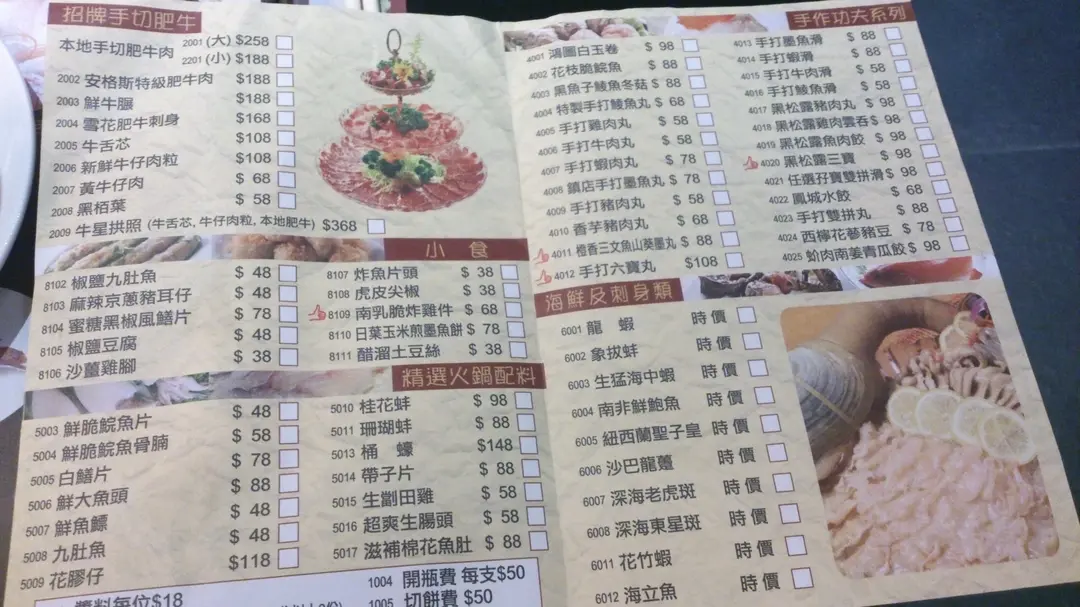 招牌手切肥牛
本地手切肥牛肉 2001 (大) $258
2201 (小) $188
2002 安格斯特級肥牛肉 $188
2003 鮮牛𦟌 $188
2004 雪花肥牛刺身 $168
2005 牛舌芯 $108
2006 新鮮牛仔肉粒 $108
2007 黃牛仔肉 $ 68
2008 黑栢葉 $ 58
2009 牛星拱照 (牛舌芯, 牛仔肉粒, 本地肥牛) $368
小食
8102 椒鹽九肚魚 $ 48
8103 麻辣京蔥豬耳仔 $ 48
8104 蜜糖黑椒風鱔片 $ 78
8105 椒鹽豆腐 $ 48
8106 沙薑雞腳 $ 38
8107 炸魚片頭 $ 38
8108 虎皮尖椒 $ 38
8109 南乳脆炸雞件 $ 68
8110 日葉玉米煎墨魚餅 $ 78
8111 醋溜土豆絲 $ 38
精選火鍋配料
5003 鮮脆鯇魚片 $ 48
5004 鮮脆鯇魚骨腩 $ 58
5005 白鱔片 $ 78
5006 鮮大魚頭 $ 88
5007 鮮魚鰾 $ 48
5008 九肚魚 $ 48
5009 花膠仔 $118
5010 桂花蚌 $ 98
5011 珊瑚蚌 $ 88
5013 桶蠔 $148
5014 帶子片 $ 88
5015 生劏田雞 $ 58
5016 超爽生腸頭 $ 58
5017 滋補棉花魚肚 $ 88
醬料每位$18
1004 開瓶費 每支$50
1005 切餅費 $50
手作功夫系列
4001 鴻圖白玉卷 $ 98
4002 花枝脆鯇魚 $ 88
4003 黑魚子鯪魚冬菇 $ 88
4004 特製手打鯪魚丸 $ 68
4005 手打雞肉丸 $ 58
4006 手打牛肉丸 $ 58
4007 手打蝦肉丸 $ 78
4008 鎮店手打墨魚丸 $ 78
4009 手打豬肉丸 $ 58
4010 香芋豬肉丸 $ 68
4011 橙香三文魚山葵墨丸 $ 88
4012 手打六寶丸 $108
4013 手打墨魚滑 $ 88
4014 手打蝦滑 $ 88
4015 手打牛肉滑 $ 58
4016 手打鯪魚滑 $ 58
4017 黑松露豬肉丸 $ 98
4018 黑松露雞肉雲吞 $ 98
4019 黑松露魚肉餃 $ 98
4020 黑松露三寶 $ 98
4021 任選孖寶雙拼滑 $ 98
4022 鳳城水餃 $ 68
4023 手打雙拼丸 $ 88
4024 西檸花蔘豬豆 $ 78
4025 蚧肉南姜青瓜餃 $ 98
海鮮及刺身類
6001 龍蝦 時價
6002 象拔蚌 時價
6003 生猛海中蝦 時價
6004 南非鮮鮑魚 時價
6005 紐西蘭聖子皇 時價
6006 沙巴龍躉 時價
6007 深海老虎斑 時價
6008 深海東星斑 時價
6011 花竹蝦 時價
6012 海立魚 時價